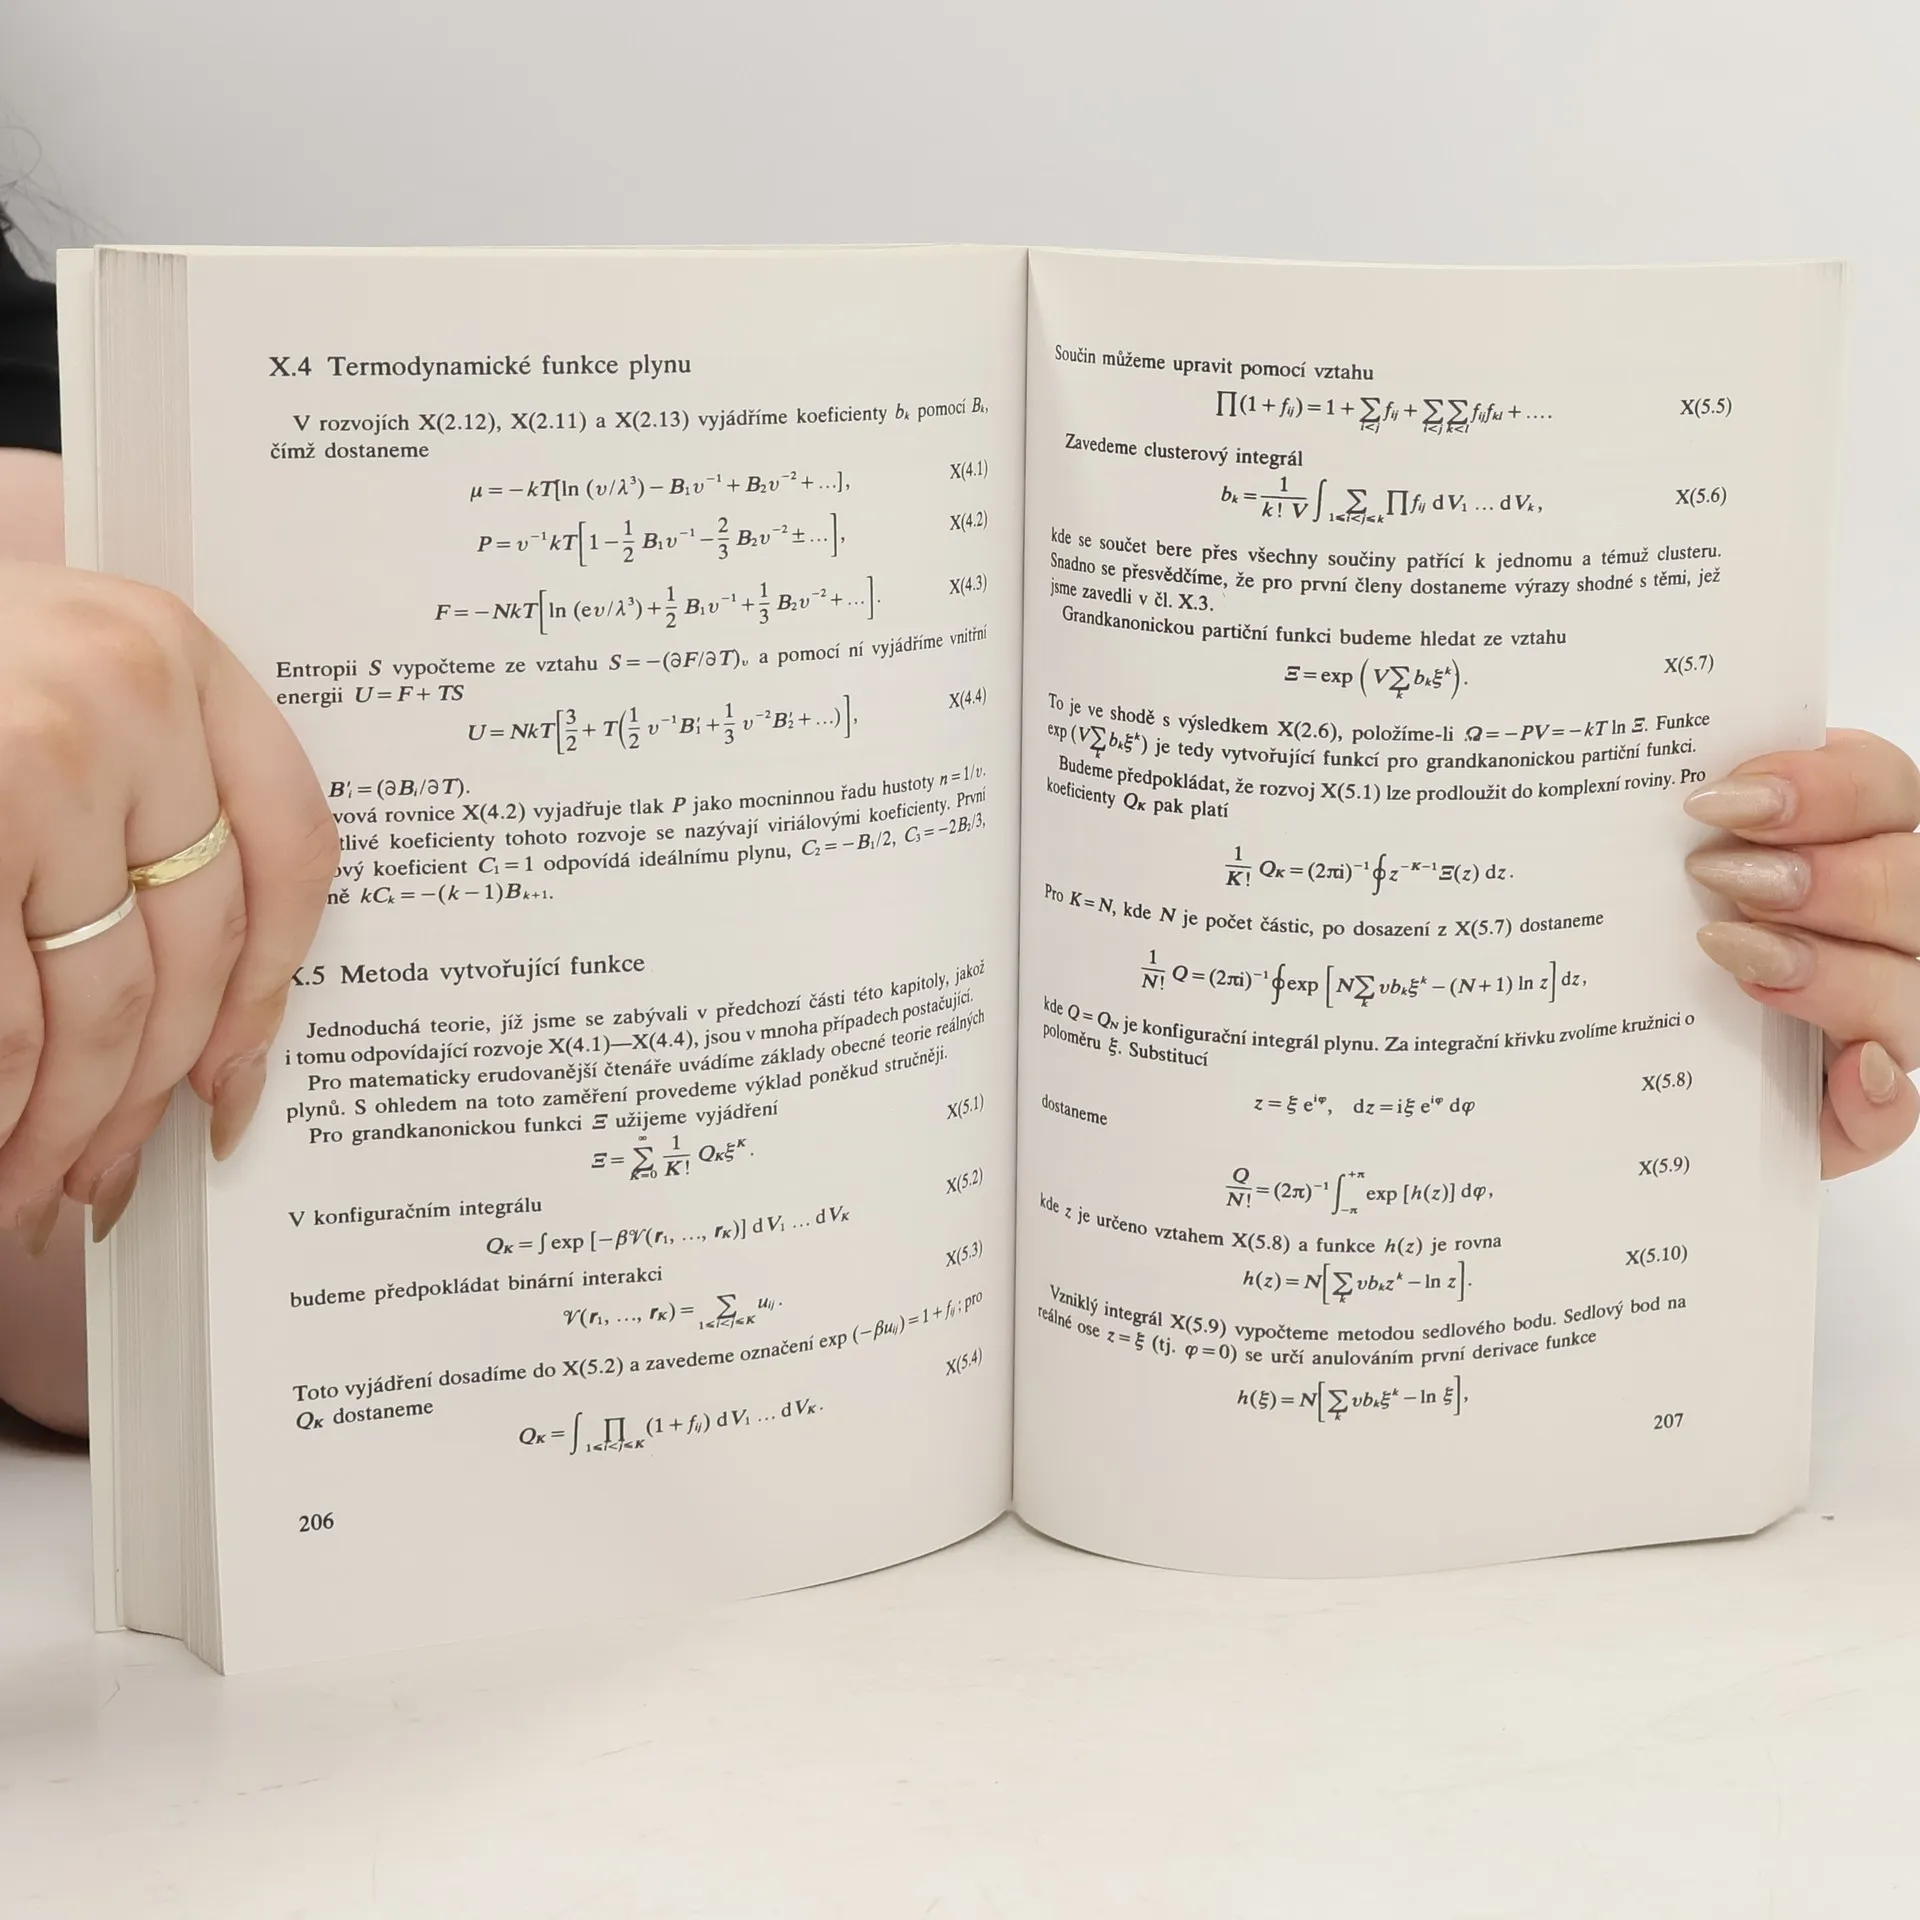 X.4 Termodynamické funkce plynu
V rozvojích X(2.12), X(2.11) a X(2.13) vyjádříme koeficienty bₖ pomocí Bₖ,
čímž dostaneme
μ = −kT[ln (v/λ³) − B₁v⁻¹ + B₂v⁻² + ...], X(4.1)
P = v⁻¹kT[1 − 1/2 B₁v⁻¹ − 2/3 B₂v⁻² ± ...], X(4.2)
F = −NkT[ln (ev/λ³) + 1/2 B₁v⁻¹ + 1/3 B₂v⁻² + ...]. X(4.3)
Entropii S vypočteme ze vztahu S = −(∂F/∂T)ᵥ a pomocí ní vyjádříme vnitřní
energii U = F + TS
U = NkT[3/2 + T(1/2 v⁻¹B₁′ + 1/3 v⁻²B₂′ + ...)], X(4.4)
Bᵢ′ = (∂Bᵢ/∂T).
vová rovnice X(4.2) vyjadřuje tlak P jako mocninnou řadu hustoty n = 1/v.
tlivé koeficienty tohoto rozvoje se nazývají viriálovými koeficienty. První
ový koeficient C₁ = 1 odpovídá ideálnímu plynu, C₂ = −B₁/2, C₃ = −2B₂/3,
ně kCₖ = −(k − 1)Bₖ₊₁.
X.5 Metoda vytvořující funkce
Jednoduchá teorie, jíž jsme se zabývali v předchozí části této kapitoly, jakož
i tomu odpovídající rozvoje X(4.1)—X(4.4), jsou v mnoha případech postačující.
Pro matematicky erudovanější čtenáře uvádíme základy obecné teorie reálných
plynů. S ohledem na toto zaměření provedeme výklad poněkud stručněji.
Pro grandkanonickou funkci Ξ užijeme vyjádření
Ξ = ∑_{K=0}^{∞} 1/K! Q_K ξ^K. X(5.1)
V konfiguračním integrálu
Q_K = ∫ exp [−β𝒱(r₁, ..., r_K)] dV₁ ... dV_K X(5.2)
budeme předpokládat binární interakci
𝒱(r₁, ..., r_K) = ∑_{1≤i<j≤K} u_{ij}. X(5.3)
Toto vyjádření dosadíme do X(5.2) a zavedeme označení exp (−βu_{ij}) = 1 + f_{ij}; pro
Q_K dostaneme
Q_K = ∫ ∏_{1≤i<j≤K} (1 + f_{ij}) dV₁ ... dV_K. X(5.4)
206
Součin můžeme upravit pomocí vztahu
∏(1 + f_{ij}) = 1 + ∑_{i<j} f_{ij} + ∑_{i<j}∑_{k<l} f_{ij}f_{kl} + .... X(5.5)
Zavedeme clusterový integrál
bₖ = 1/(k! V) ∫ ∑_{1≤i<j≤k} ∏ f_{ij} dV₁ ... dVₖ, X(5.6)
kde se součet bere přes všechny součiny patřící k jednomu a témuž clusteru.
Snadno se přesvědčíme, že pro první členy dostaneme výrazy shodné s těmi, jež
jsme zavedli v čl. X.3.
Grandkanonickou partiční funkci budeme hledat ze vztahu
Ξ = exp (V∑ₖ bₖξᵏ). X(5.7)
To je ve shodě s výsledkem X(2.6), položíme-li Ω = −PV = −kT ln Ξ. Funkce
exp (V∑ₖ bₖξᵏ) je tedy vytvořující funkcí pro grandkanonickou partiční funkci.
Budeme předpokládat, že rozvoj X(5.1) lze prodloužit do komplexní roviny. Pro
koeficienty Q_K pak platí
1/K! Q_K = (2πi)⁻¹ ∮ z^{−K−1} Ξ(z) dz.
Pro K = N, kde N je počet částic, po dosazení z X(5.7) dostaneme
1/N! Q = (2πi)⁻¹ ∮ exp [N∑ₖ vbₖξᵏ − (N + 1) ln z] dz,
kde Q = Q_N je konfigurační integrál plynu. Za integrační křivku zvolíme kružnici o
poloměru ξ. Substitucí
z = ξ e^{iφ}, dz = iξ e^{iφ} dφ X(5.8)
dostaneme
Q/N! = (2π)⁻¹ ∫_{−π}^{+π} exp [h(z)] dφ, X(5.9)
kde z je určeno vztahem X(5.8) a funkce h(z) je rovna
h(z) = N[∑ₖ vbₖzᵏ − ln z]. X(5.10)
Vzniklý integrál X(5.9) vypočteme metodou sedlového bodu. Sedlový bod na
reálné ose z = ξ (tj. φ = 0) se určí anulováním první derivace funkce
h(ξ) = N[∑ₖ vbₖξᵏ − ln ξ],
207